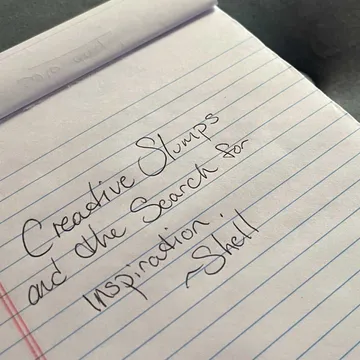 Creative Slumps
and the Search for
Inspiration.
~Shell